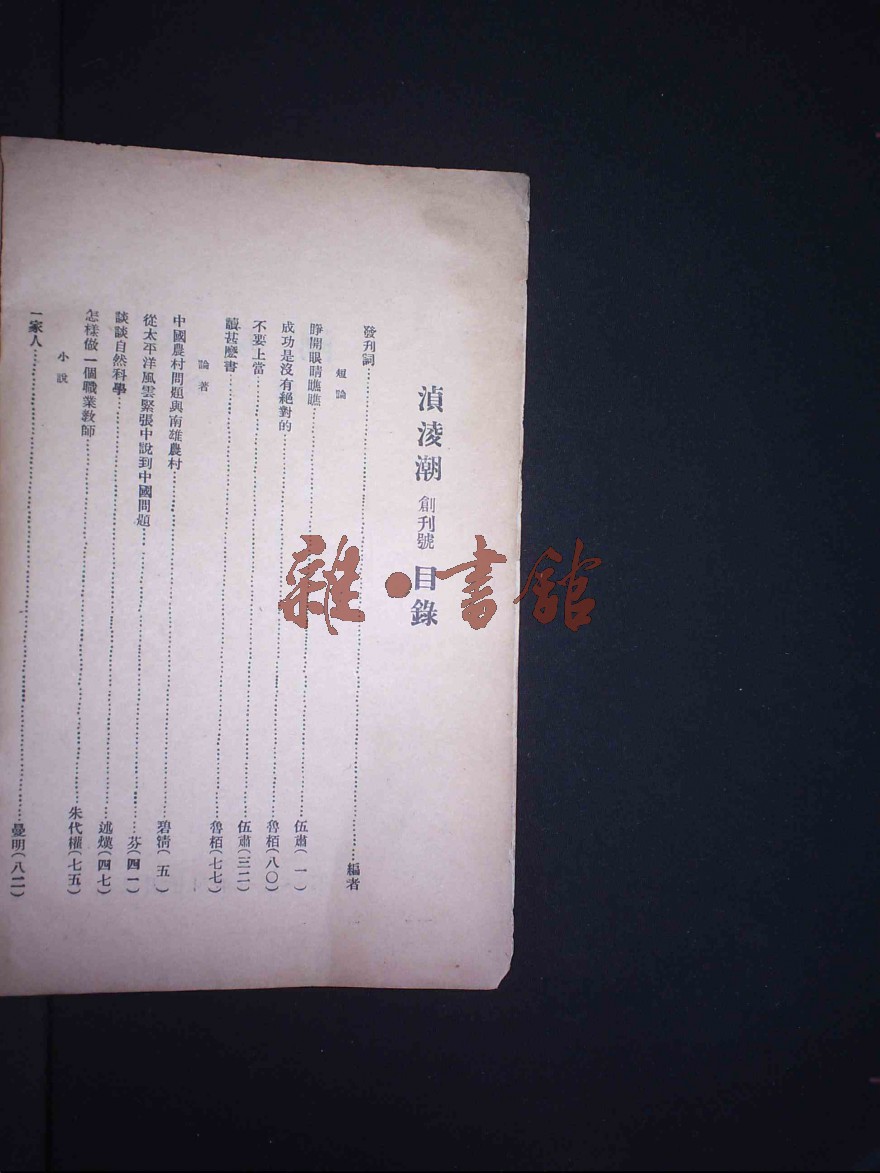 湞淩潮 創刊號 目錄
發刊詞……編者
短論
睜開眼睛瞧瞧……伍肅（一）
成功是沒有絕對的……魯栢（八〇）
不要上當……伍肅（三二）
讀甚麽書……魯栢（七七）
論著
中國農村問題與南雄農村……碧清（五）
從太平洋風雲緊張中說到中國問題……芬（四一）
談談自然科學……述煥（四七）
怎樣做一個職業教師……朱代權（七五）
小說
一家人……曼明（八二）
雜·書館